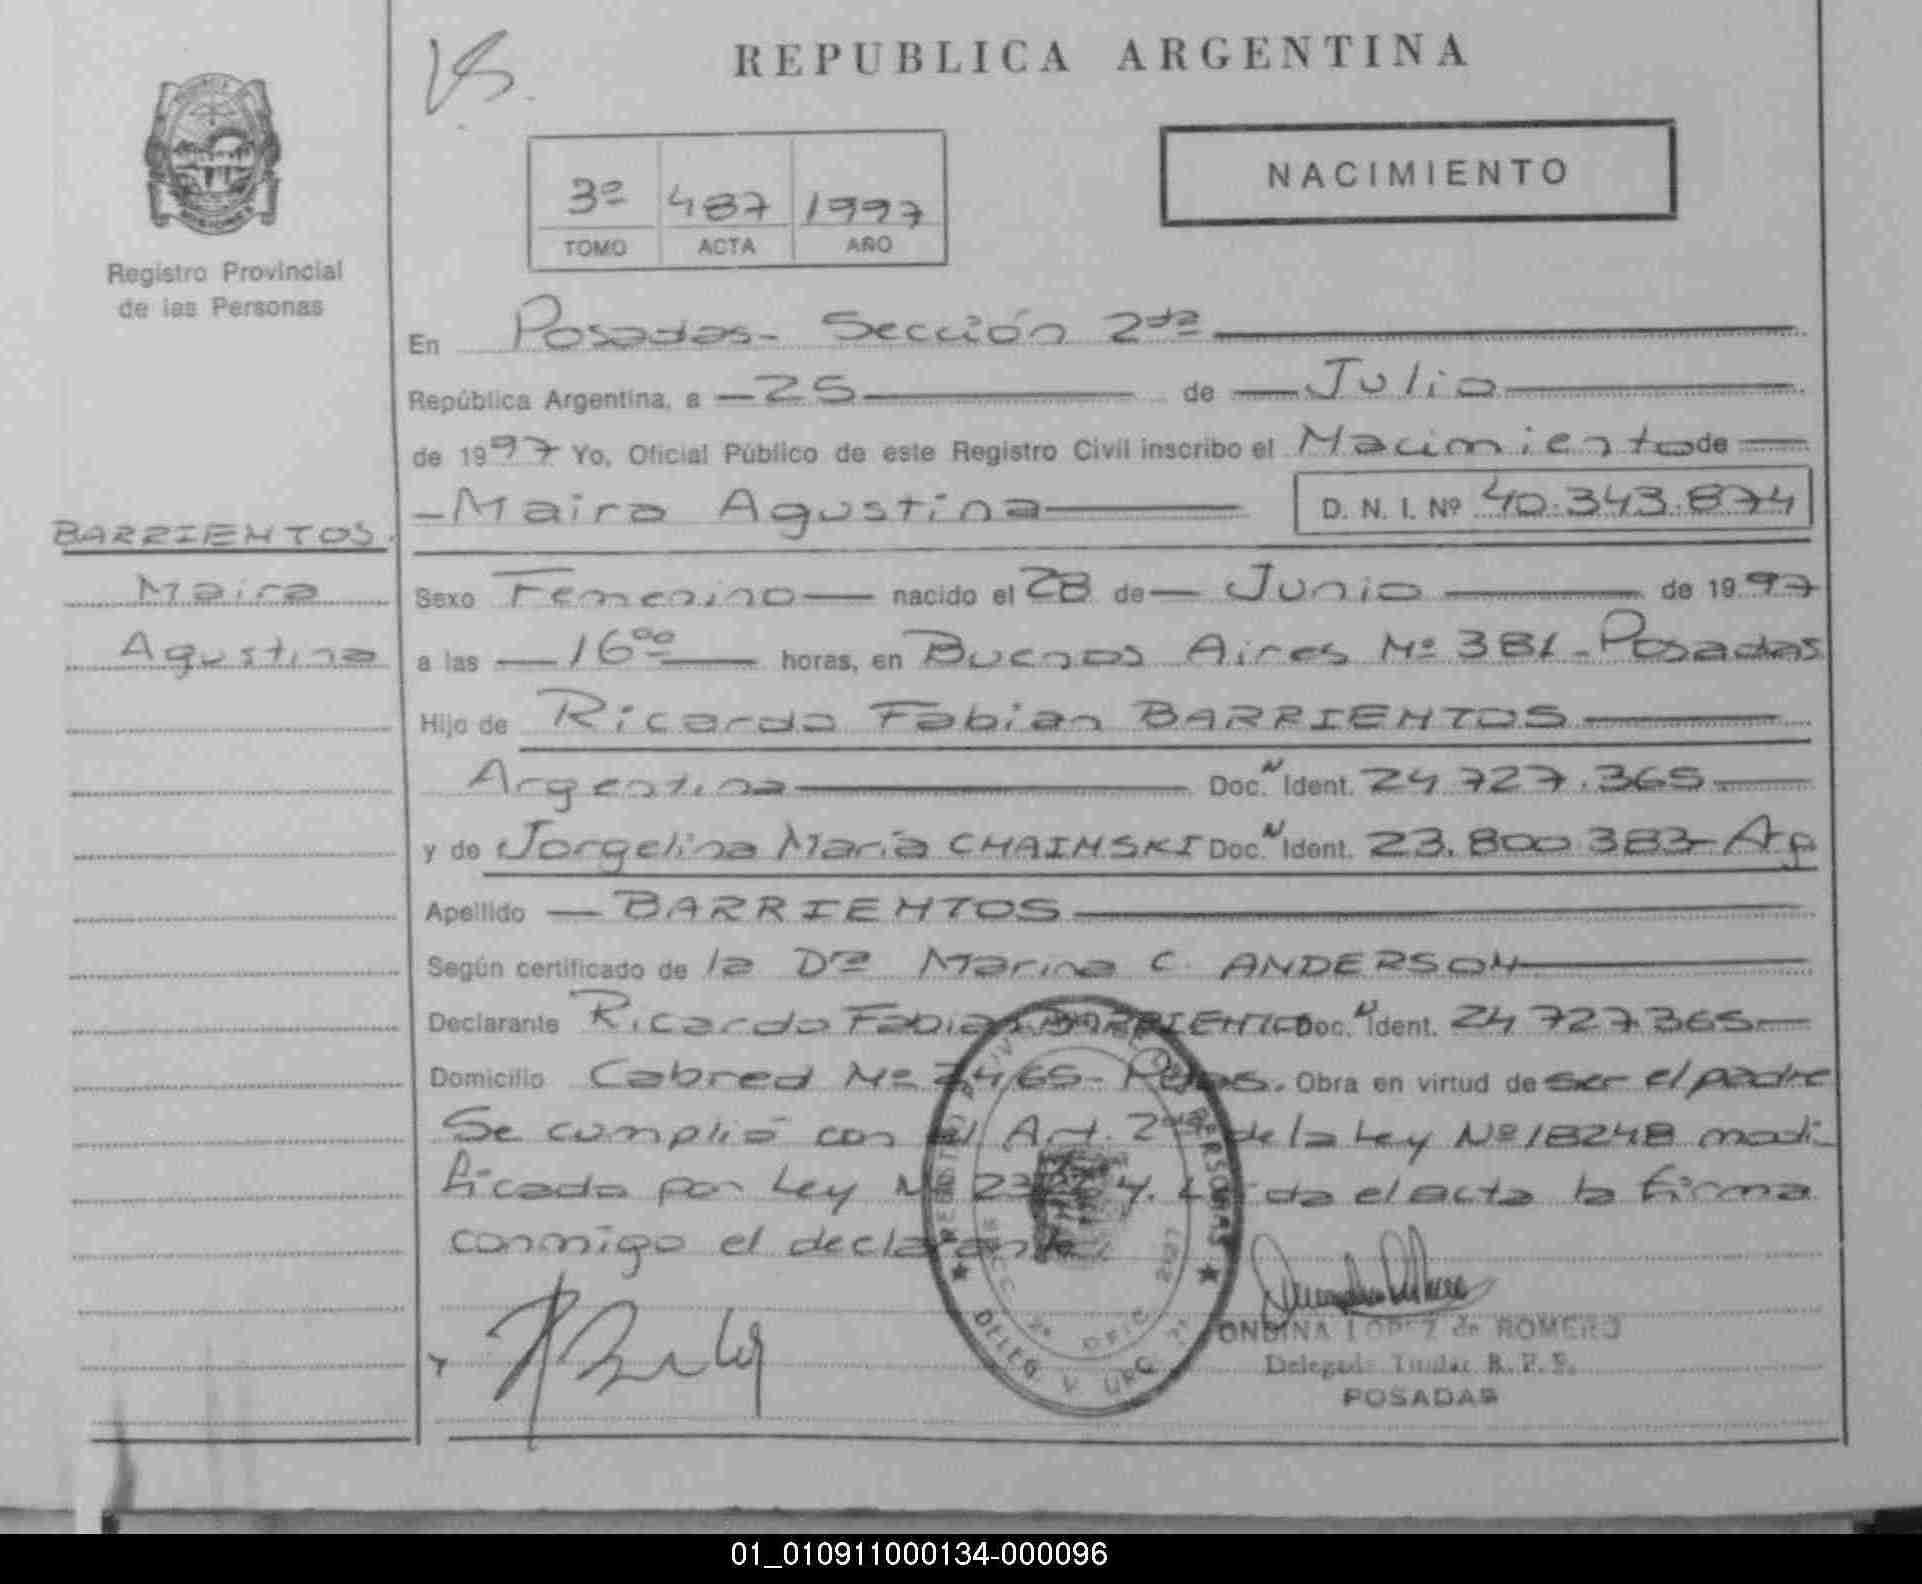 REPUBLICA ARGENTINA
NACIMIENTO
3º 487 1997
TOMO ACTA AÑO
Registro Provincial
de las Personas
En Posadas- Sección 2da
República Argentina, a 25 de Julio
de 1997 Yo, Oficial Público de este Registro Civil inscribo el Nacimiento de
Maira Agustina D. N. I. Nº 40.343.874
BARRIENTOS
Maira
Agustina
Sexo Femenino nacido el 28 de Junio de 1997
a las 16ºº horas, en Buenos Aires Nº 381-Posadas
Hijo de Ricardo Fabian BARRIENTOS
Argentina Doc. N Ident. 24.727.365
y de Jorgelina María CHAINSKI Doc. N Ident. 23.800.383-Ap
Apellido BARRIENTOS
Según certificado de la Dra Marina C. ANDERSON
Declarante Ricardo Fabian BARRIENTO Doc. N Ident. 24.727.365
Domicilio Cabred Nº 2465- Pdas. Obra en virtud de ser el padre
Se cumplió con el Art. 2do de la Ley Nº 18248 modi-
ficada por Ley Nº la firma
conmigo el declarante
ONDINA LOPEZ de ROMERO
Delegada Titular R. P. P.
POSADAS
DELEG. Y URC.
01_010911000134-000096